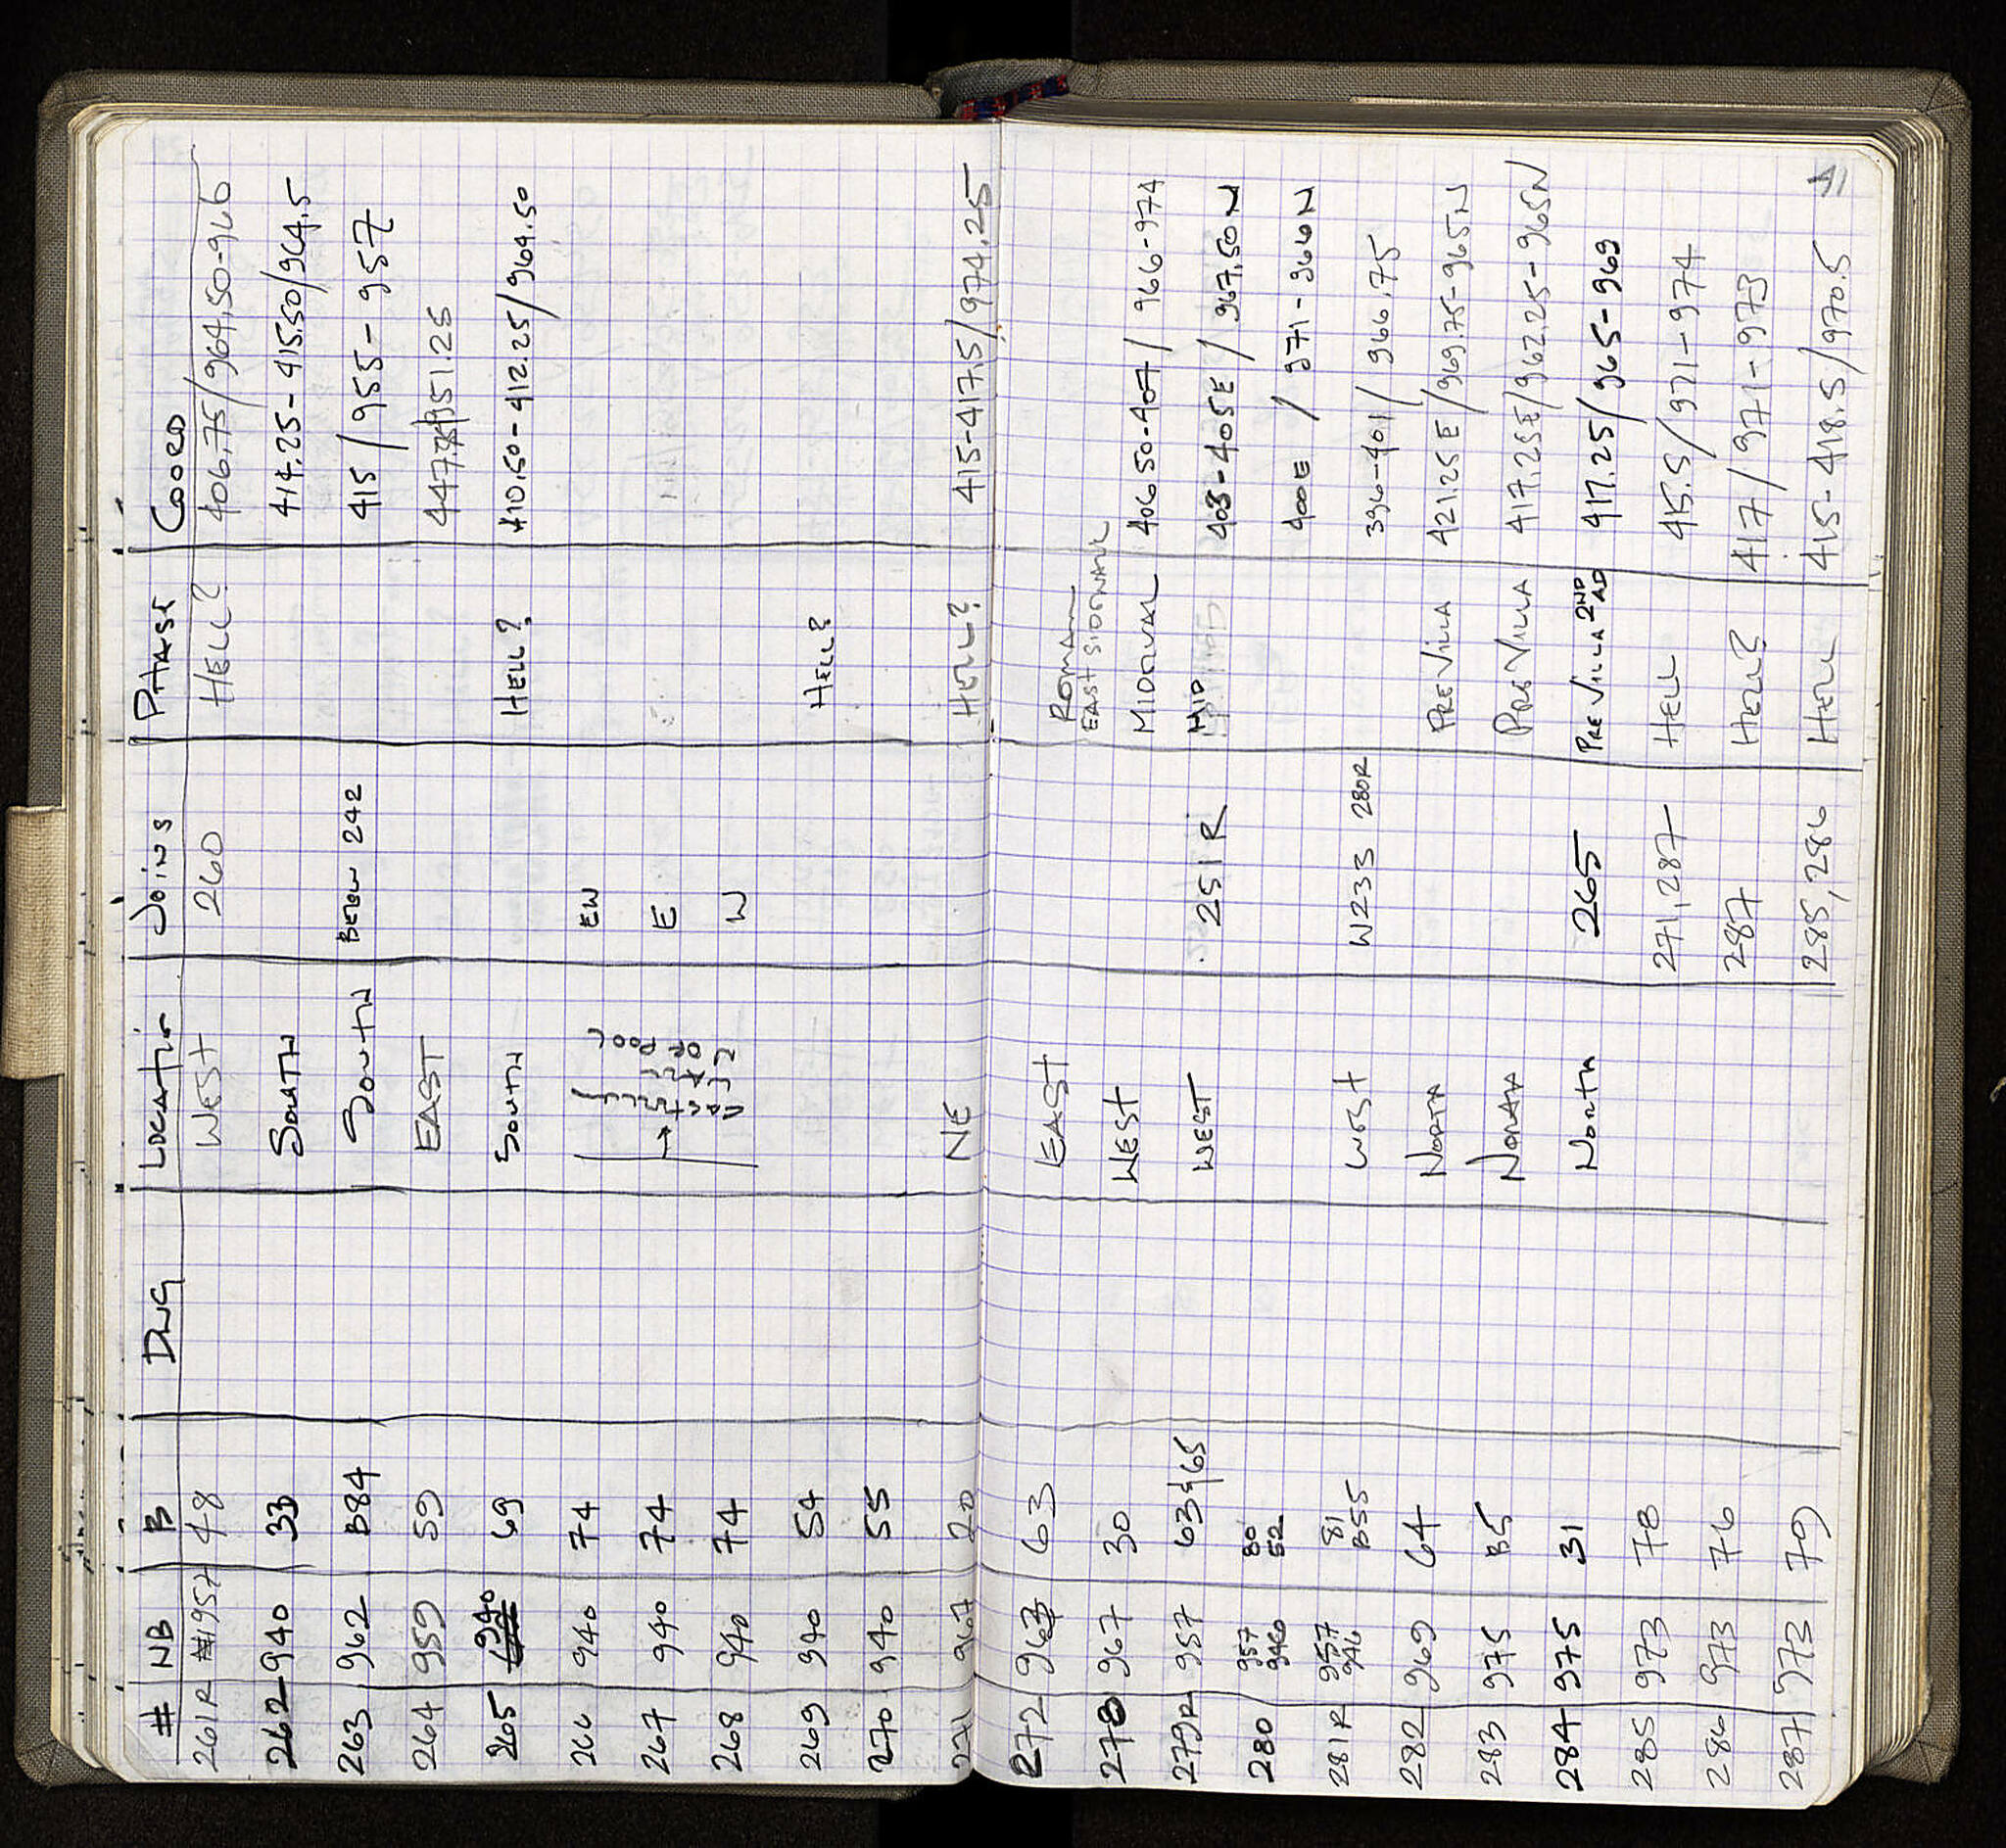 # NB B DWG Location Joins Phase Coord
261R #1957 48 West 260 Hell? 406.75/964.50-966
262 940 33 South 414.25-415.50/964.5
263 962 B84 South Below 242 415/955-957
264 959 59 East 951.25
265 940 69 South Hell? 410.50-412.25/964.50
266 940 74 EW
267 940 74 → E
268 940 74 W
OF POOL
269 940 54 Hell?
270 940 55
271 967 20 NE Hell? 415-417.5/974.25
272 963 63 East Roman East Sidewalk
278 967 30 West Midoval 406.50-407/966-974
279R 957 63+65 West 251R Mid 403-405E/967.50N
280 957 80 52 400E/971-966N
281R 957 946 81 B55 West W233 280R 396-401/966.75
282 969 64 North Pre Villa 421.25E/969.75-965N
283 975 B5 North Pre Villa 417.25E/962.25-965N
284 975 31 North 265 Pre Villa 2nd AD 417.25/965-969
285 973 78 271,287 Hell 415.5/971-974
286 973 76 287 Hell? 417/971-973
287 973 79 285,286 Hell 415-418.5/970.5
41